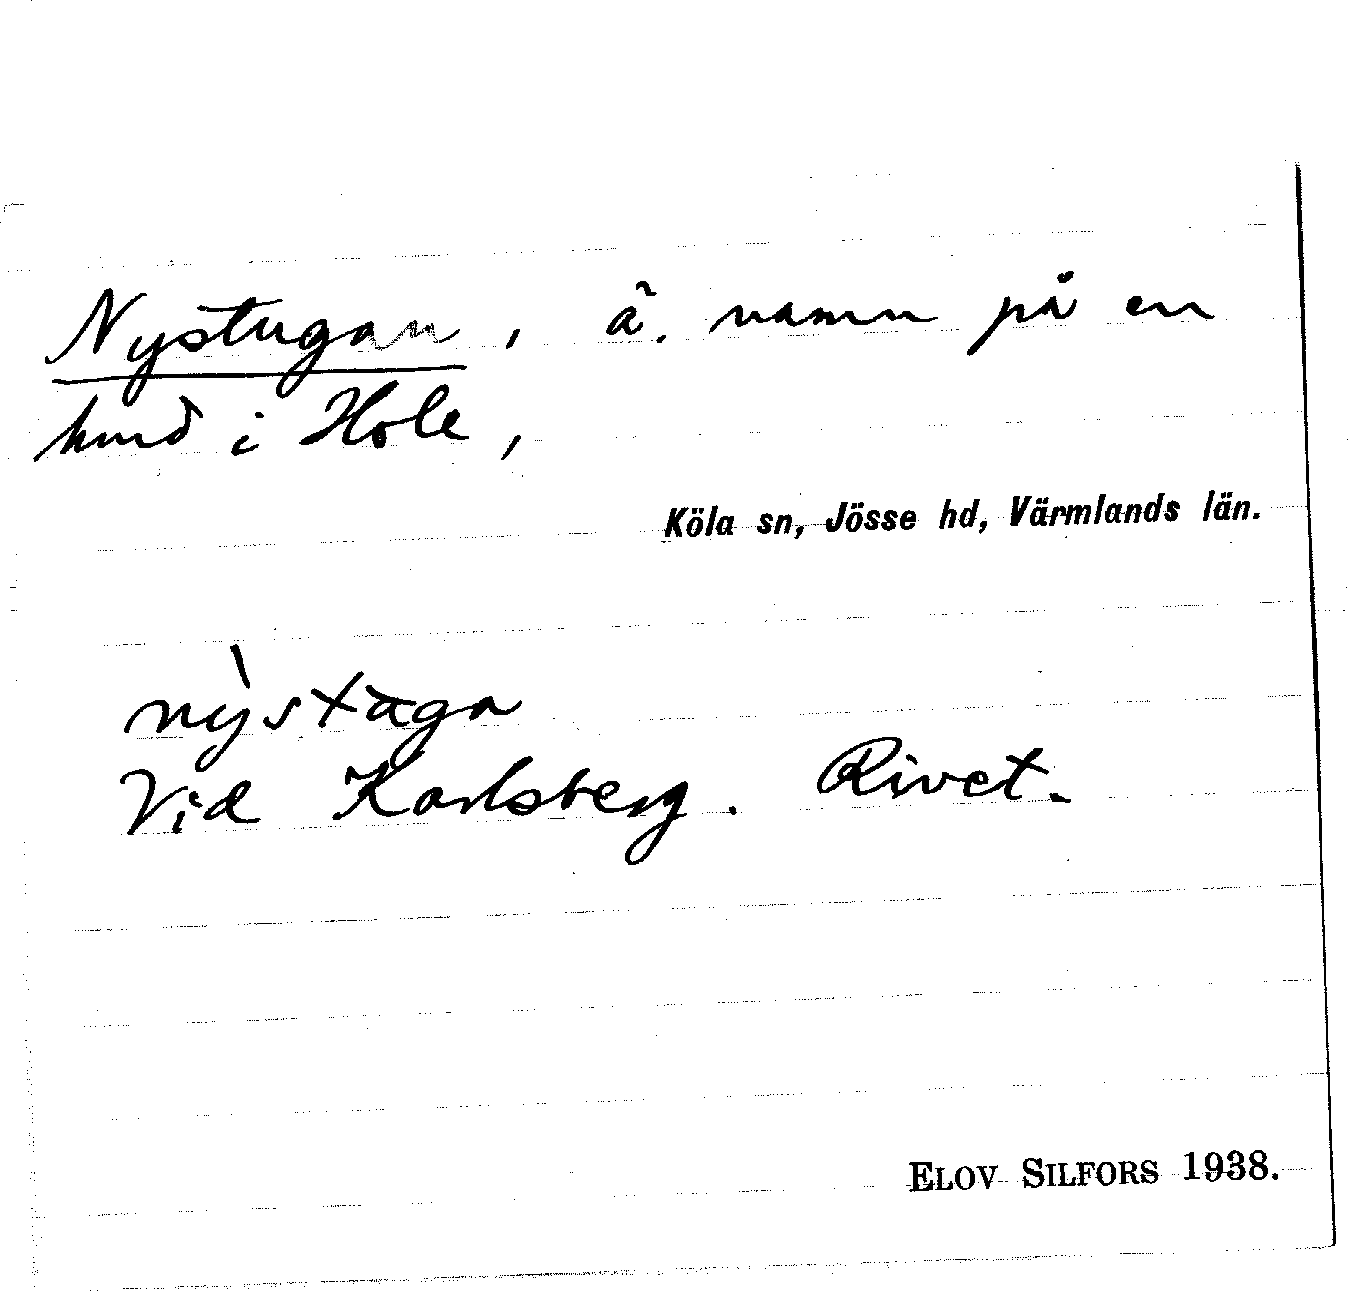 Nystugan, ä. namn på en
hmd i Hole,
Köla sn, Jösse hd, Värmlands län.
nỳstaga
Vid Karlsberg. Rivet.
ELOV SILFORS 1938.